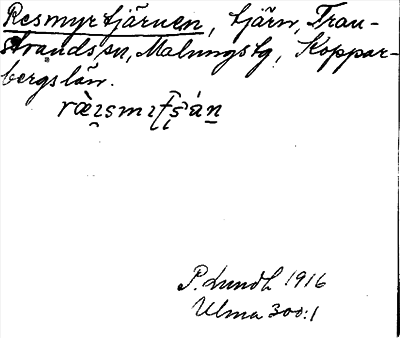 Resmyrtjärnen, tjärn, Tran-
strands sn, Malungs tg, Koppar-
bergs län.
P. Lundh 1916
Ulma 300:1